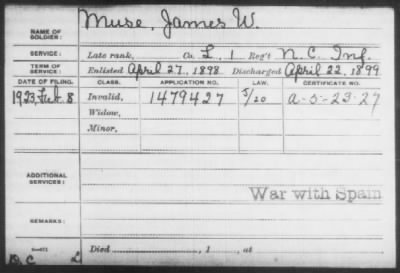 NAME OF SOLDIER: Muse, James W.
SERVICE: Late rank, Co. L, 1 Reg't N.C. Inf.
TERM OF SERVICE: Enlisted April 27, 1898 Discharged April 22, 1899
DATE OF FILING. CLASS. APPLICATION NO. LAW. CERTIFICATE NO.
1923, Feb. 8 Invalid, 1479427 5/20 a-5-23-27
Widow,
Minor,
ADDITIONAL SERVICES:
War with Spain
REMARKS:
Died , 1 , at